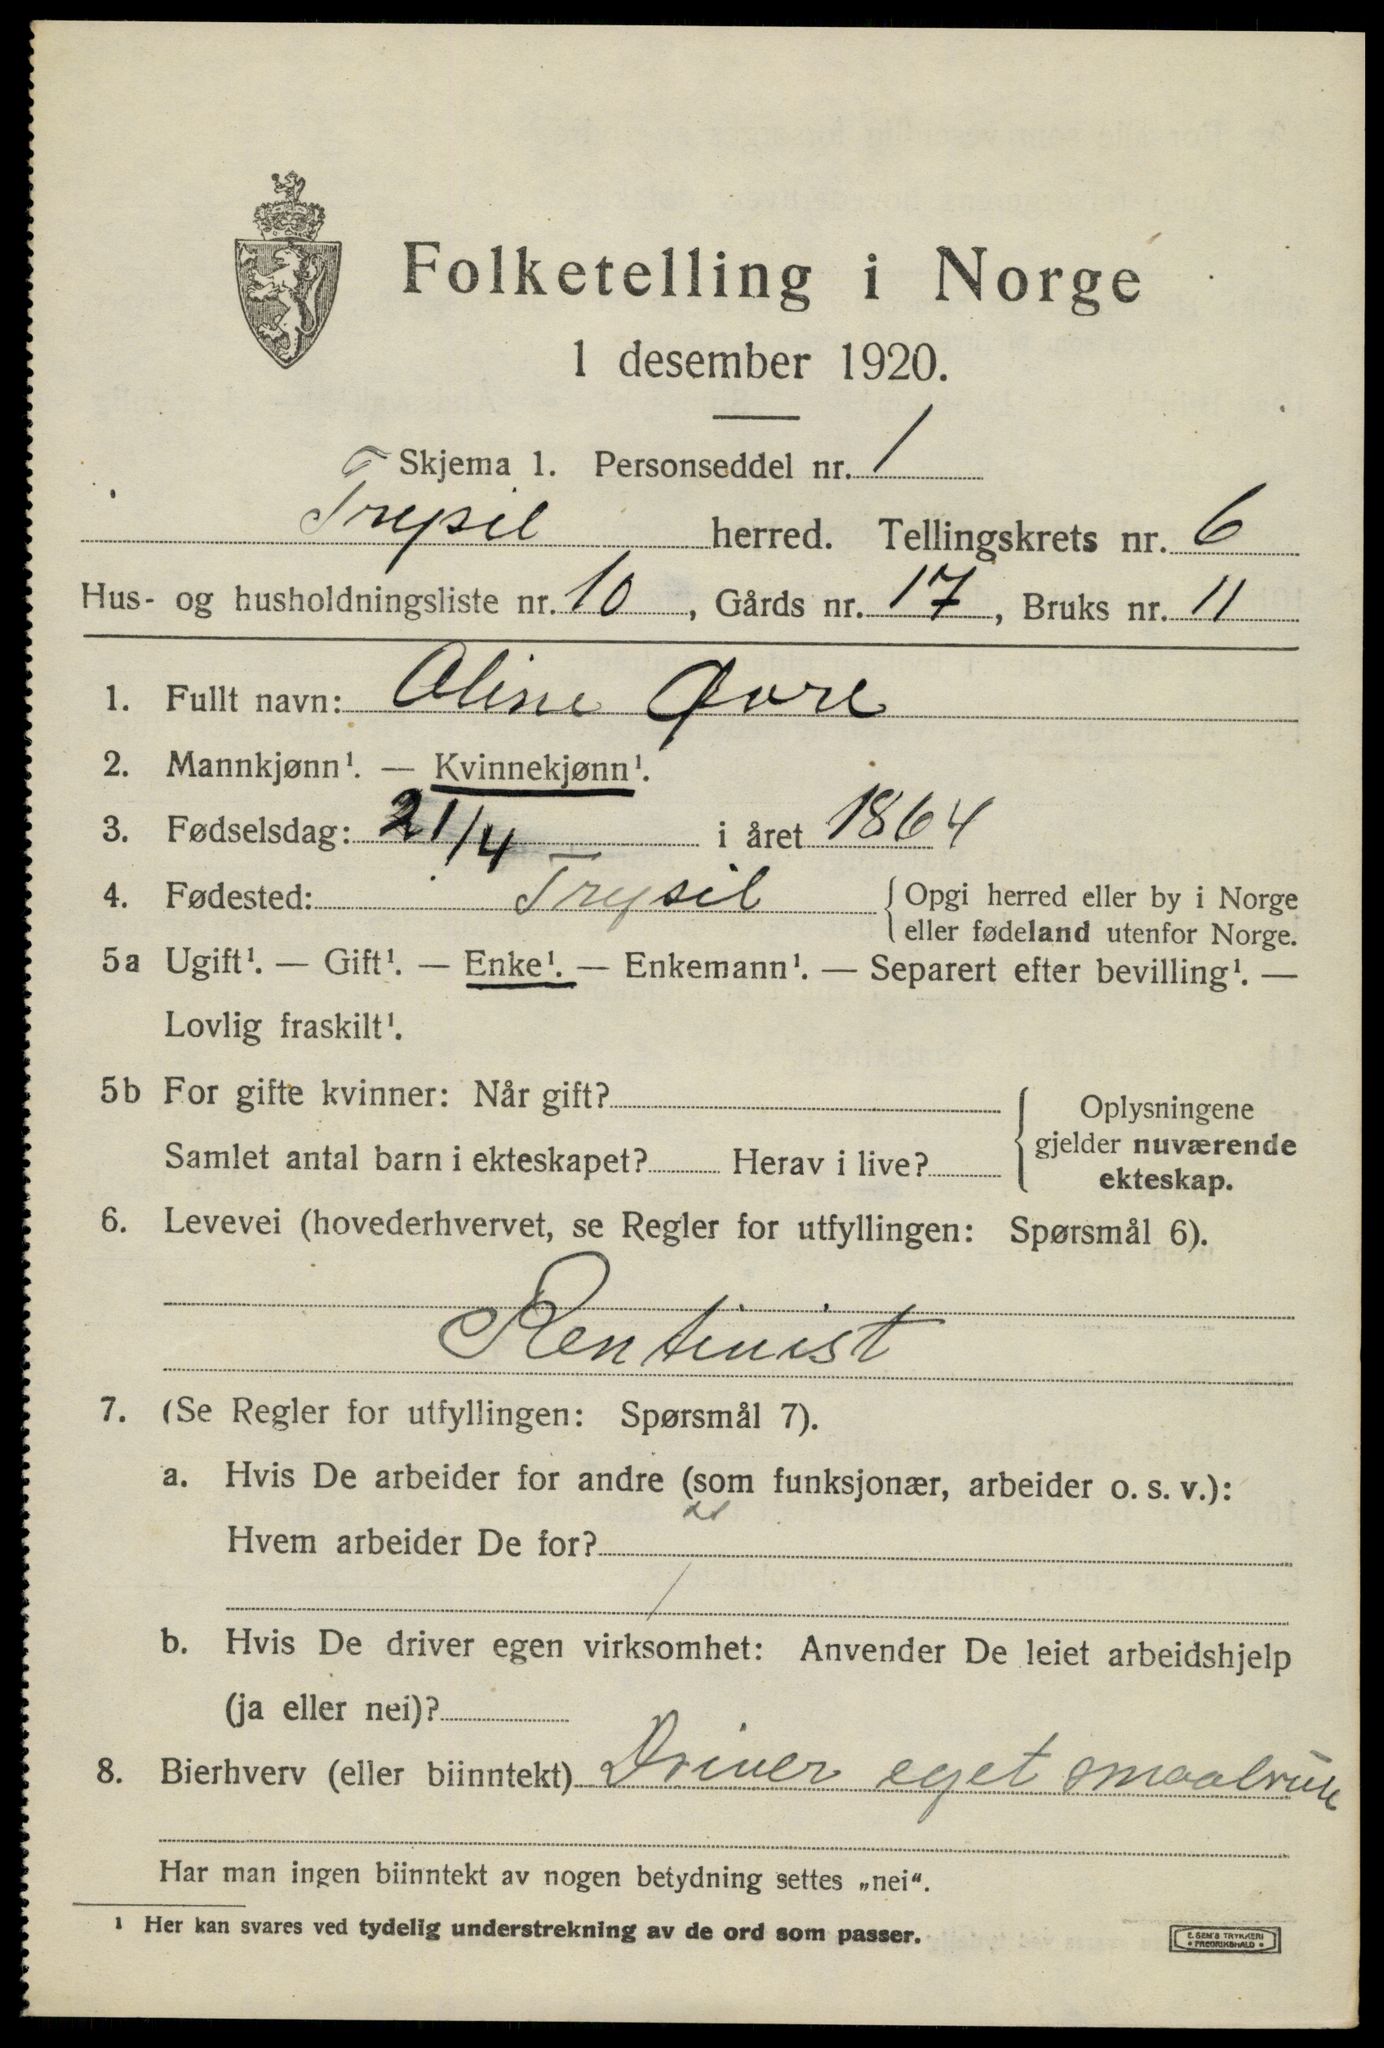 Folketelling i Norge
1 desember 1920.
Skjema 1. Personseddel nr. 1
Trysil herred. Tellingskrets nr. 6
Hus- og husholdningsliste nr. 10, Gårds nr. 17, Bruks nr. 11
1. Fullt navn: Oline Øvre
2. Mannkjønn¹. — Kvinnekjønn¹.
3. Fødselsdag: 21/4 i året 1864
4. Fødested: Trysil { Opgi herred eller by i Norge
eller fødeland utenfor Norge.
5a Ugift¹. — Gift¹. — Enke¹. — Enkemann¹. — Separert efter bevilling¹. —
Lovlig fraskilt¹.
5b For gifte kvinner: Når gift?
Samlet antal barn i ekteskapet? Herav i live?
{ Oplysningene
gjelder nuværende
ekteskap.
6. Levevei (hovederhvervet, se Regler for utfyllingen: Spørsmål 6).
Rentinist
7. (Se Regler for utfyllingen: Spørsmål 7).
a. Hvis De arbeider for andre (som funksjonær, arbeider o. s. v.):
Hvem arbeider De for?
b. Hvis De driver egen virksomhet: Anvender De leiet arbeidshjelp
(ja eller nei)?
8. Bierhverv (eller biinntekt) Driver eget smaabruk
Har man ingen biinntekt av nogen betydning settes „nei“.
¹ Her kan svares ved tydelig understrekning av de ord som passer.
E. SEM'S TRYKKERI
• FREDRIKSHALD •